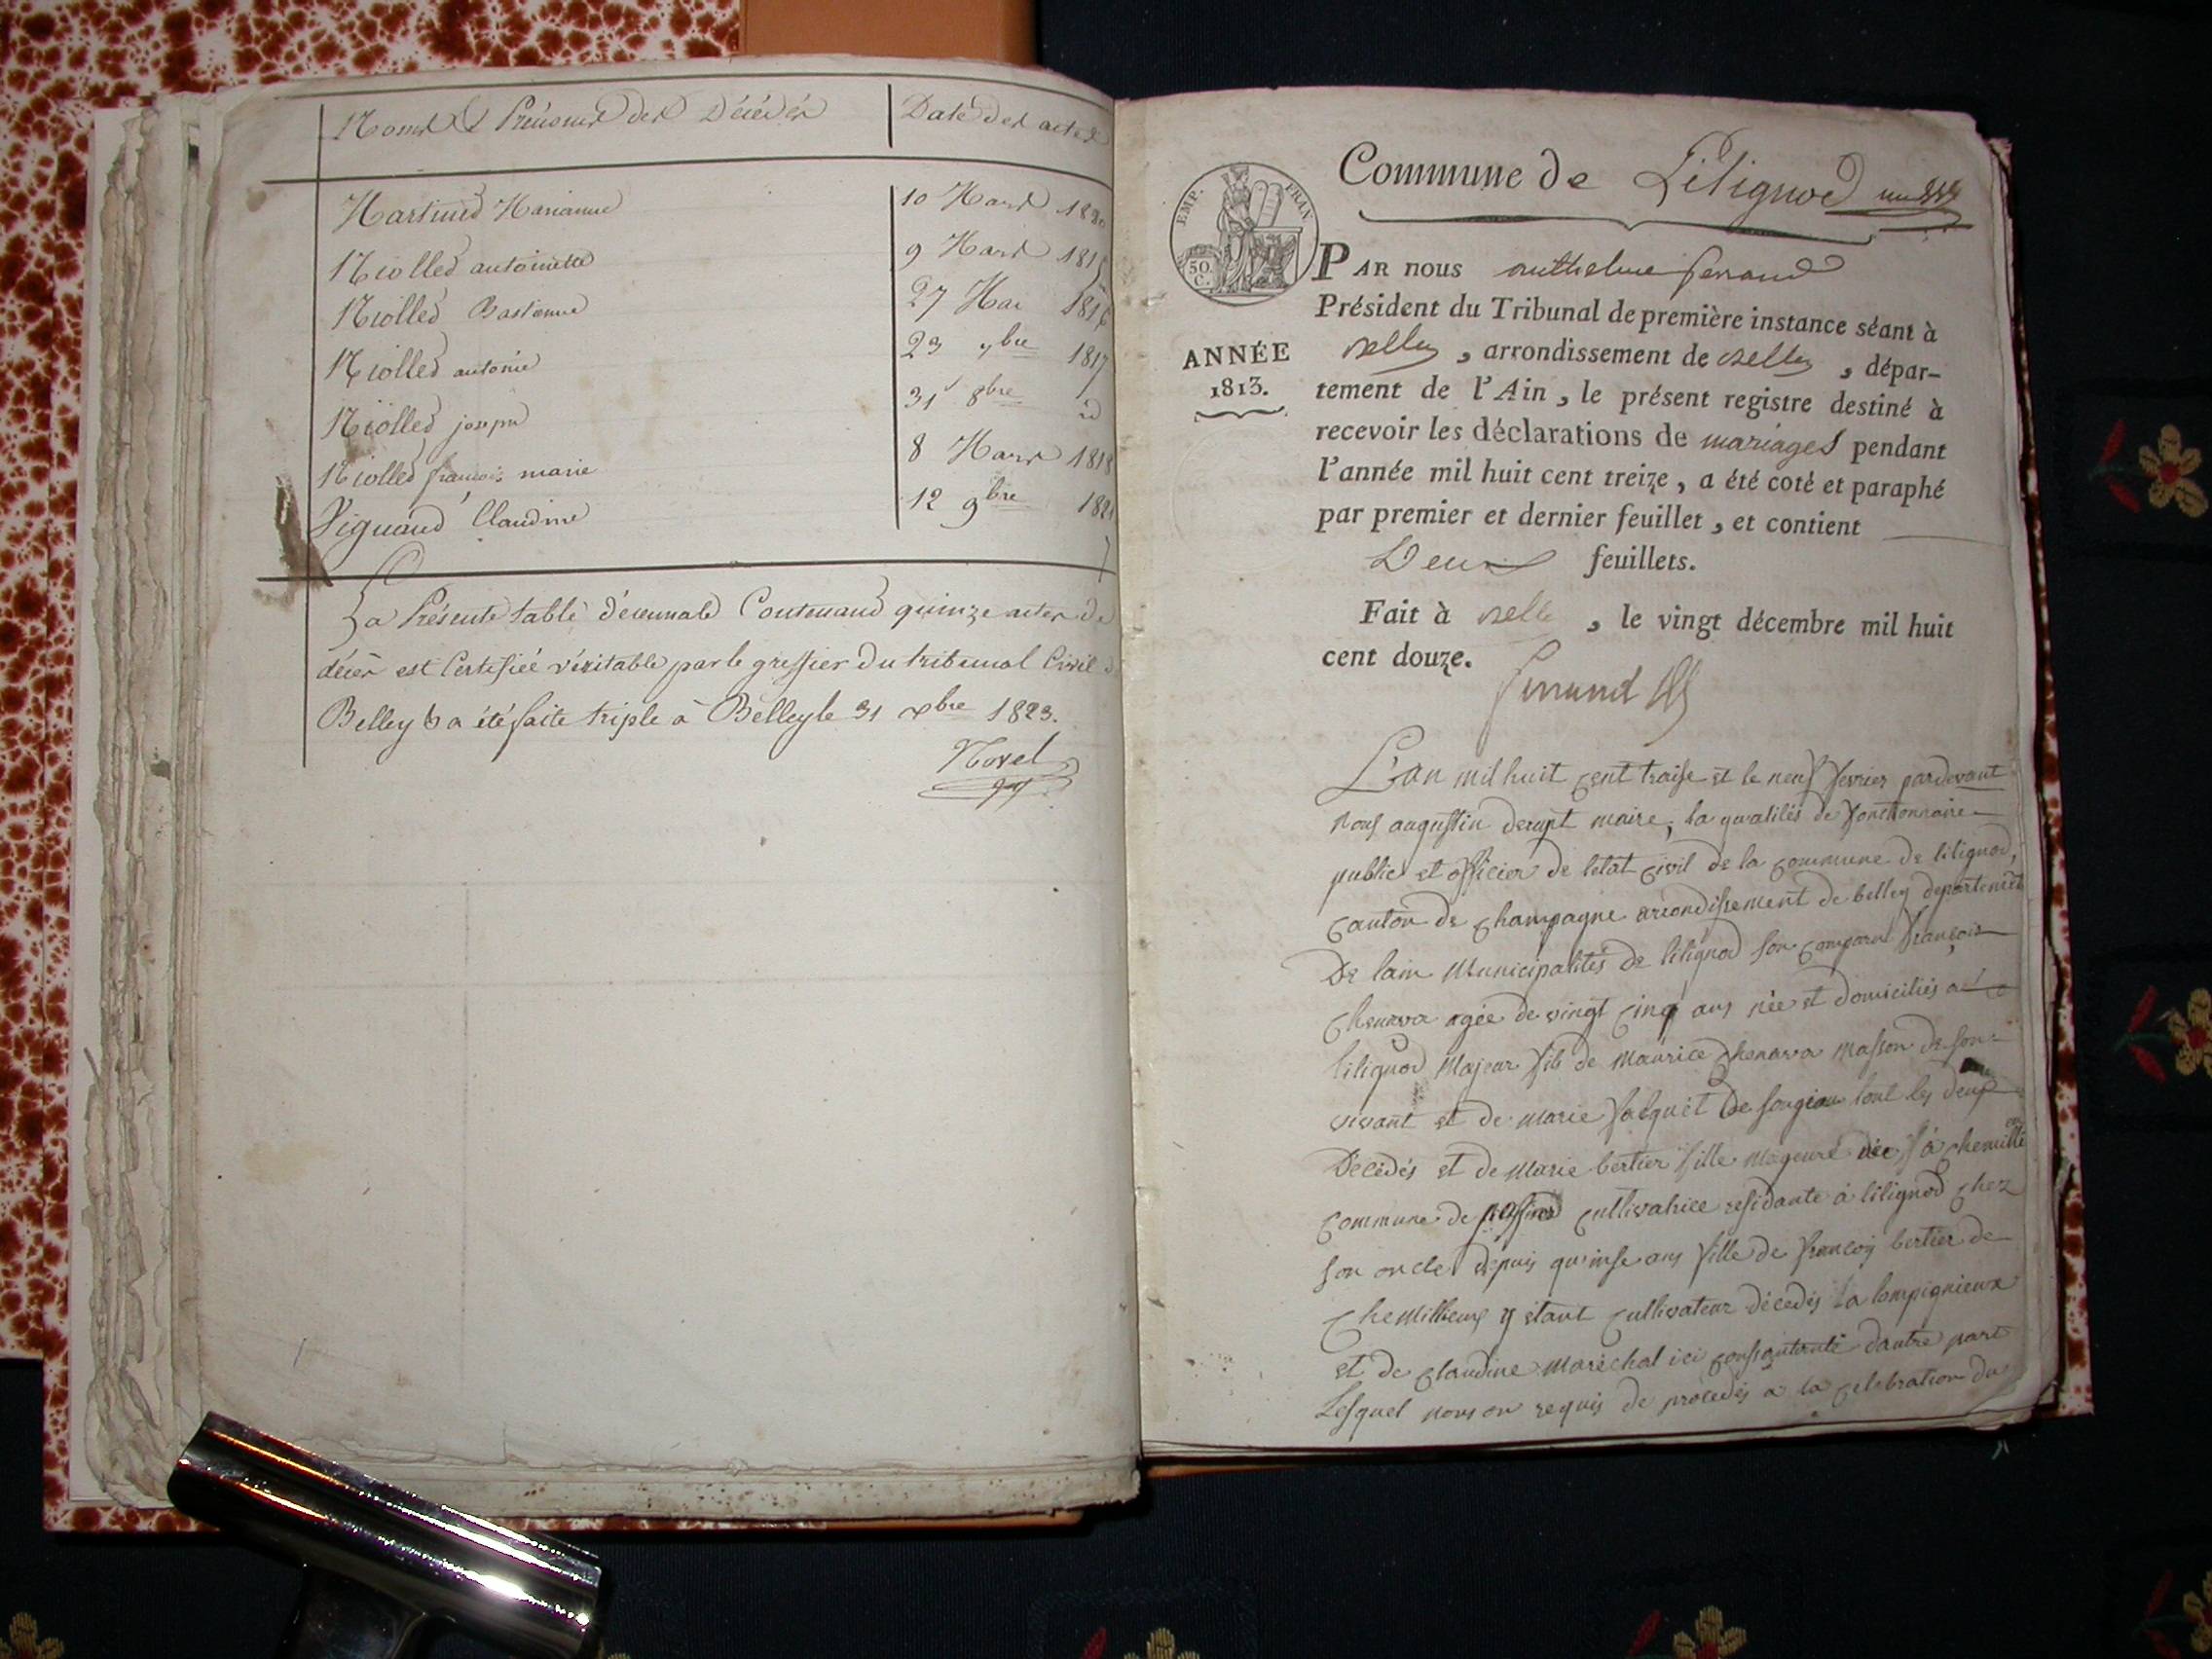 Noms & Prénoms des Décédés
Date des actes
Martined Marianne 10 Mars 1820
Niolled antoinette 9 Mars 1815
Niolled Bastienne 27 Mai 1816
Niolled antoine 23 7bre 1817
Niolled joseph 31 8bre id
Niolled françois marie 8 Mars 1818
Viguand Claudine 12 9bre 1821
La Présente table décennale Contenand quinze actes de
décès est Certifiée véritable par le greffier du tribunal Civil d
Belley & a été faite triple à Belley le 31 xbre 1823.
Novel
EMP. FRAN
50. C.
ANNÉE
1813.
Commune de Lilignod
PAR nous anthelme ferrand
Président du Tribunal de première instance séant à
belley, arrondissement de belley, dépar-
tement de l'Ain, le présent registre destiné à
recevoir les déclarations de mariages pendant
l'année mil huit cent treize, a été coté et paraphé
par premier et dernier feuillet, et contient
Deux feuillets.
Fait à belley, le vingt décembre mil huit
cent douze.
ferrand
L'an mil huit cent traise et le neuf fevrier pardevant
nous augustin derupt maire, la qualités de fonctionnaire
public et officier de letat civil de la commune de lilignod,
canton de champagne arrondissement de belley departement
De lain Municipalités de lilignod son comparu françois
chenava agée de vingt cinq ans née et domiciliés a
lilignod Majeur fils de maurice chenava masson de son
vivant et de marie jacquet de songieu tout les deux
Décédés et de Marie bertier fille majeure née à chemillie
commune de passin cultivatrice residante à lilignod chez
son oncle depuis quinse ans fille de françois bertier de
chemillieux y etant cultivateur décedés a lompignieux
et de claudine maréchal ici consentente dautre part
Lesquel nous on requis de procedés a la celebration du